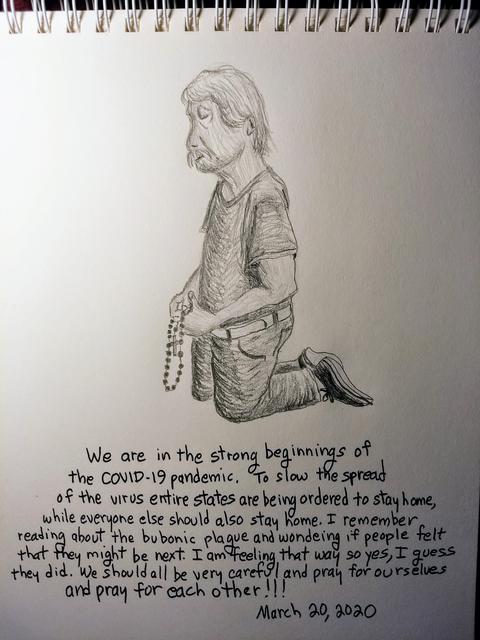 We are in the strong beginnings of
the COVID-19 pandemic. To slow the spread
of the virus entire states are being ordered to stay home,
while everyone else should also stay home. I remember
reading about the bubonic plague and wondeing if people felt
that they might be next. I am feeling that way so yes, I guess
they did. We should all be very careful and pray for ourselves
and pray for each other!!!
March 20, 2020